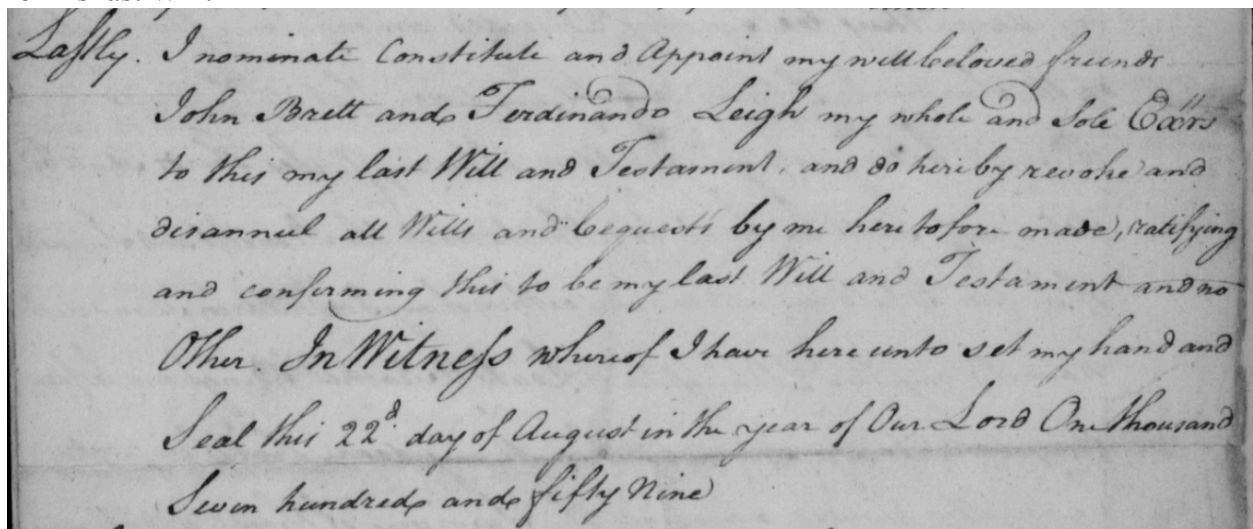 Lastly. I nominate Constitute and Appoint my well beloved friends
John Brett and Ferdinando Leigh my whole and Sole Exrs
to this my last Will and Testament, and do hereby revoke and
disannul all Wills and bequests by me heretofore made, ratifying
and confirming this to be my last Will and Testament and no
Other. In Witness whereof I have here unto set my hand and
Seal this 22d. day of August in the year of Our Lord One thousand
Seven hundred and fifty Nine